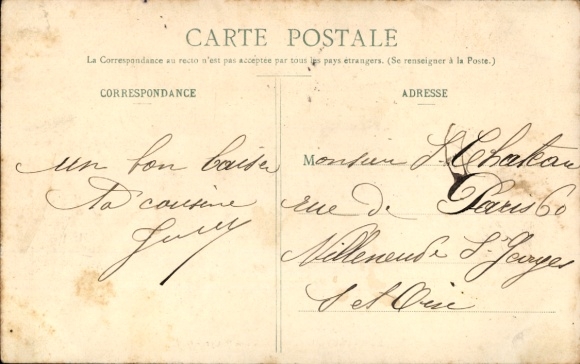 CARTE POSTALE
La Correspondance au recto n'est pas acceptée par tous les pays étrangers. (Se renseigner à la Poste.)
CORRESPONDANCE
un bon baiser
ta cousine
ADRESSE
Monsieur L. Chateau
rue de Paris 60
Villeneuve St Georges
S et Oise